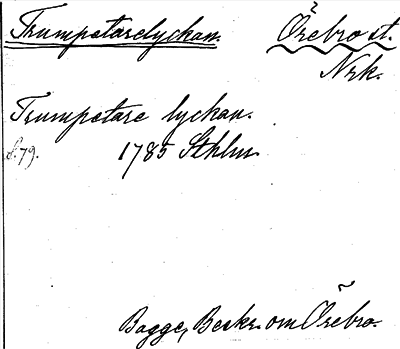 Trumpetarelyckan. Örebro st.
Nrk.
Trumpetare lyckan.
s. 79. 1785 Sthlm
Bagge, Beskr. om Örebro.